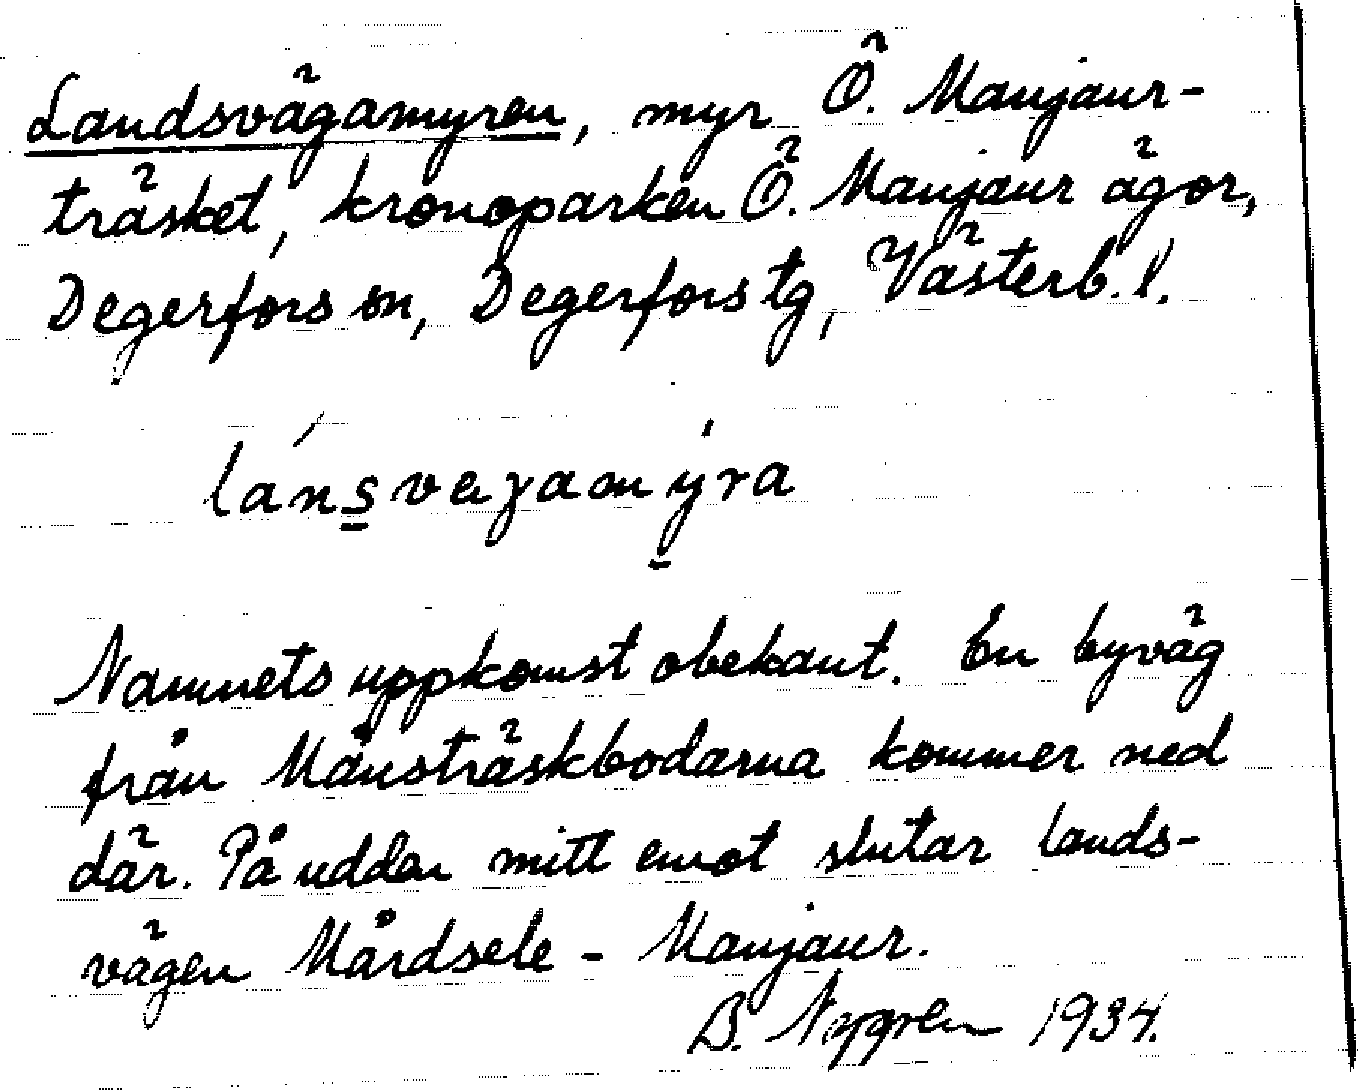 Landsvägamyren, myr Ö. Manjaur-
träsket, kronoparken Ö. Manjaur ägor,
Degerfors sn, Degerfors tg, Västerb. l.
lánsvegamýra
Namnets uppkomst obekant. En byväg
från Månsträskbodarna kommer ned
där. På udden mitt emot slutar lands-
vägen Mårdsele - Manjaur.
B. Nygren 1934.